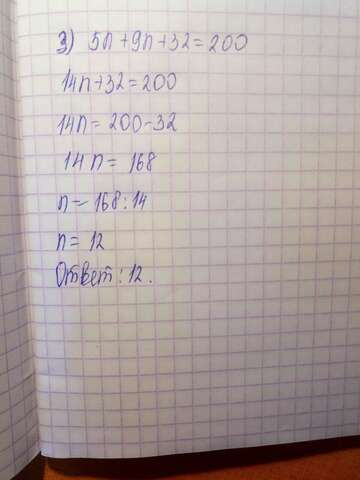 3) 5n+9n+32=200
14n+32=200
14n=200-32
14n=168
n=168:14
n=12
Ответ: 12.